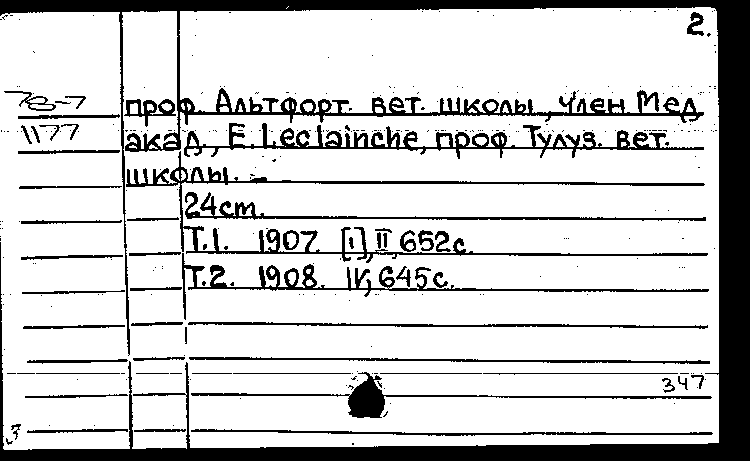 2.
78-7
1177
проф. Альтфорт. вет. школы, член Мед.
акад., E. Leclainche, проф. Тулуз. вет.
школы. –
24 ст.
Т.1. 1907. [I], II, 652 с.
Т.2. 1908. IV, 645 с.
347
3